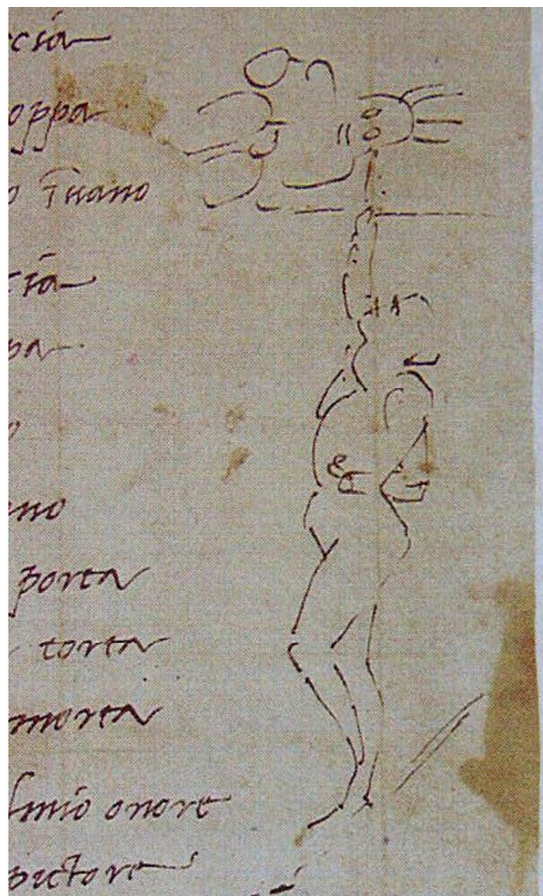 ccia
oppa
o ī uano
cia
pa
o
eno
porta
torta
morta
lmio onore
pictore